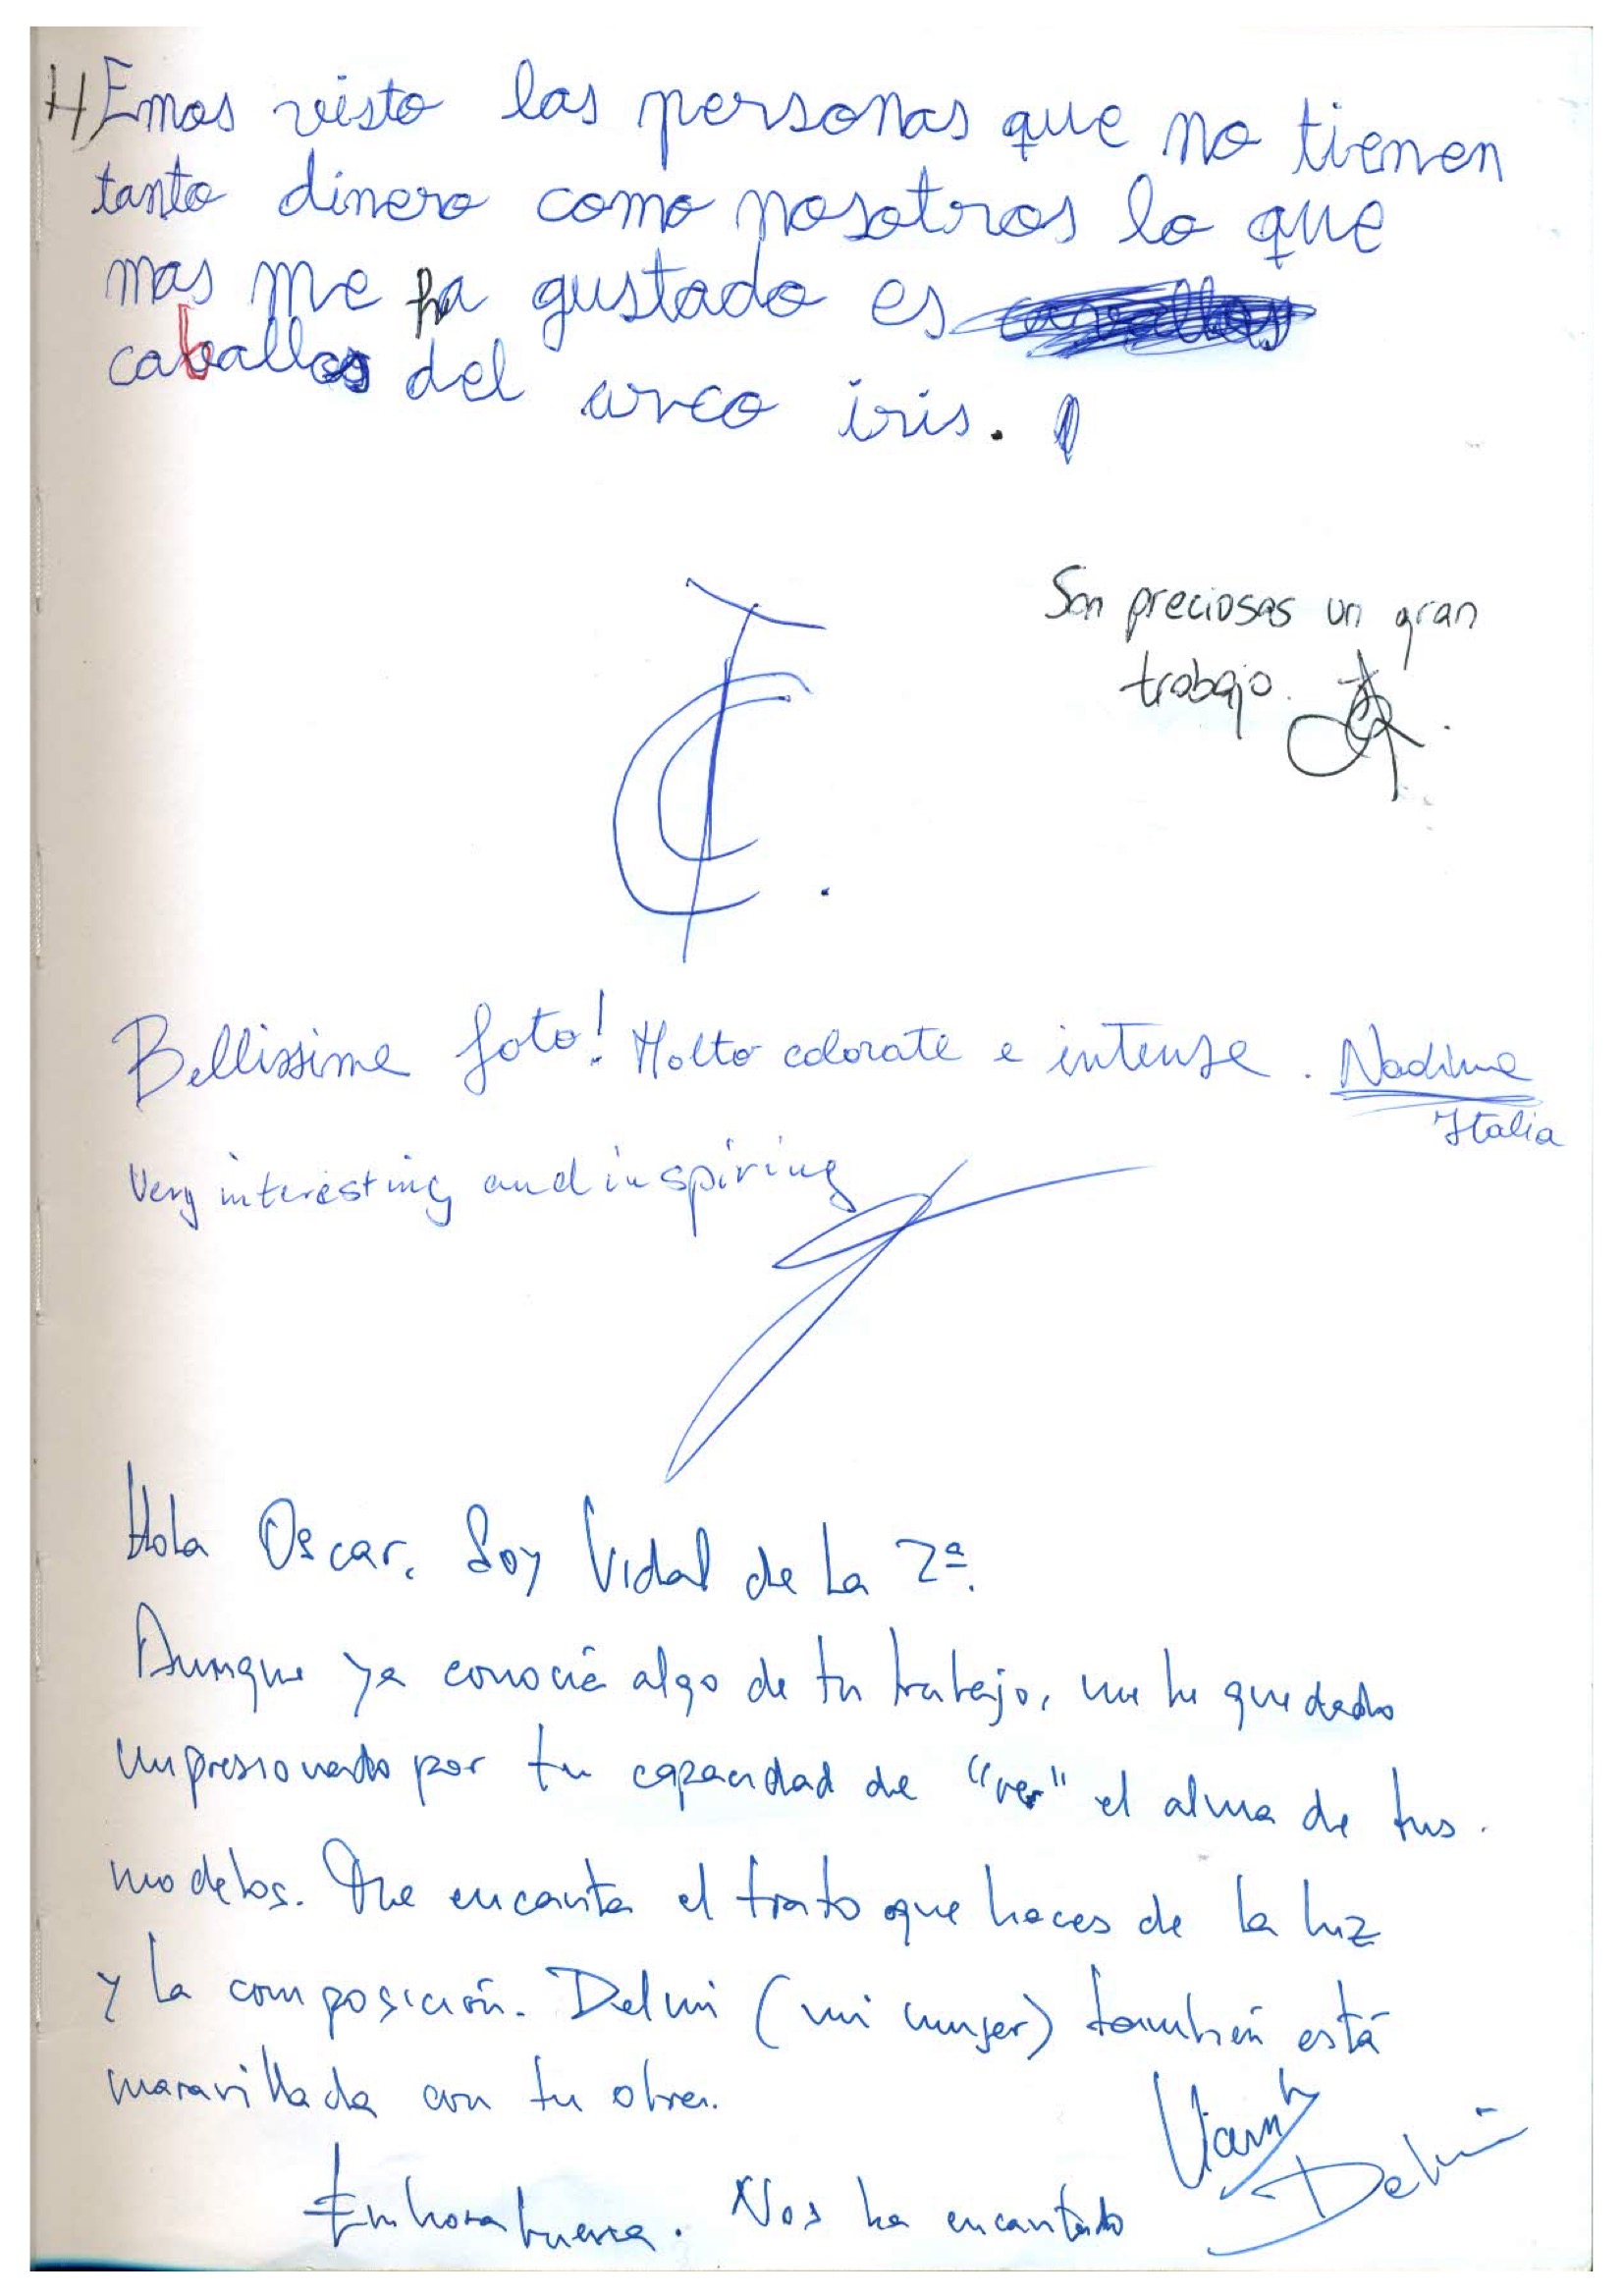 HEmos visto las personas que no tienen
tanto dinero como nosotros lo que
mas me ha gustado es
caballos del arco iris.
Son preciosas un gran
trabajo.
Bellissime foto! Molto colorate e intense. Nadine
Italia
Very interesting and inspiring
Hola Oscar. Soy Vidal de La 2ª.
Aunque ya conocía algo de tu trabajo, me he quedado
impresionado por tu capacidad de "ver" el alma de tus
modelos. Me encanta el trato que haces de la luz
y la composición. Delmi (mi mujer) también está
maravillada con tu obra.
Enhorabuena. Nos ha encantado